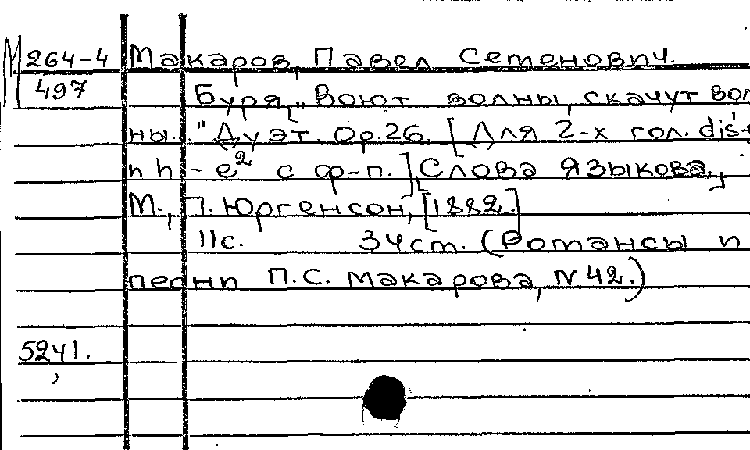 М 264-4 Макаров, Павел Семенович.
497 Буря. „Воют волны, скачут вол
ны." Дуэт. Ор. 26. [Для 2-х гол. dis¹-
и h - e² с ф-п.] [Слова Языкова.]
М., П. Юргенсон, [1882.]
11 с. 34 см. (Романсы и
песни П.С. Макарова, N 42.)
5241.